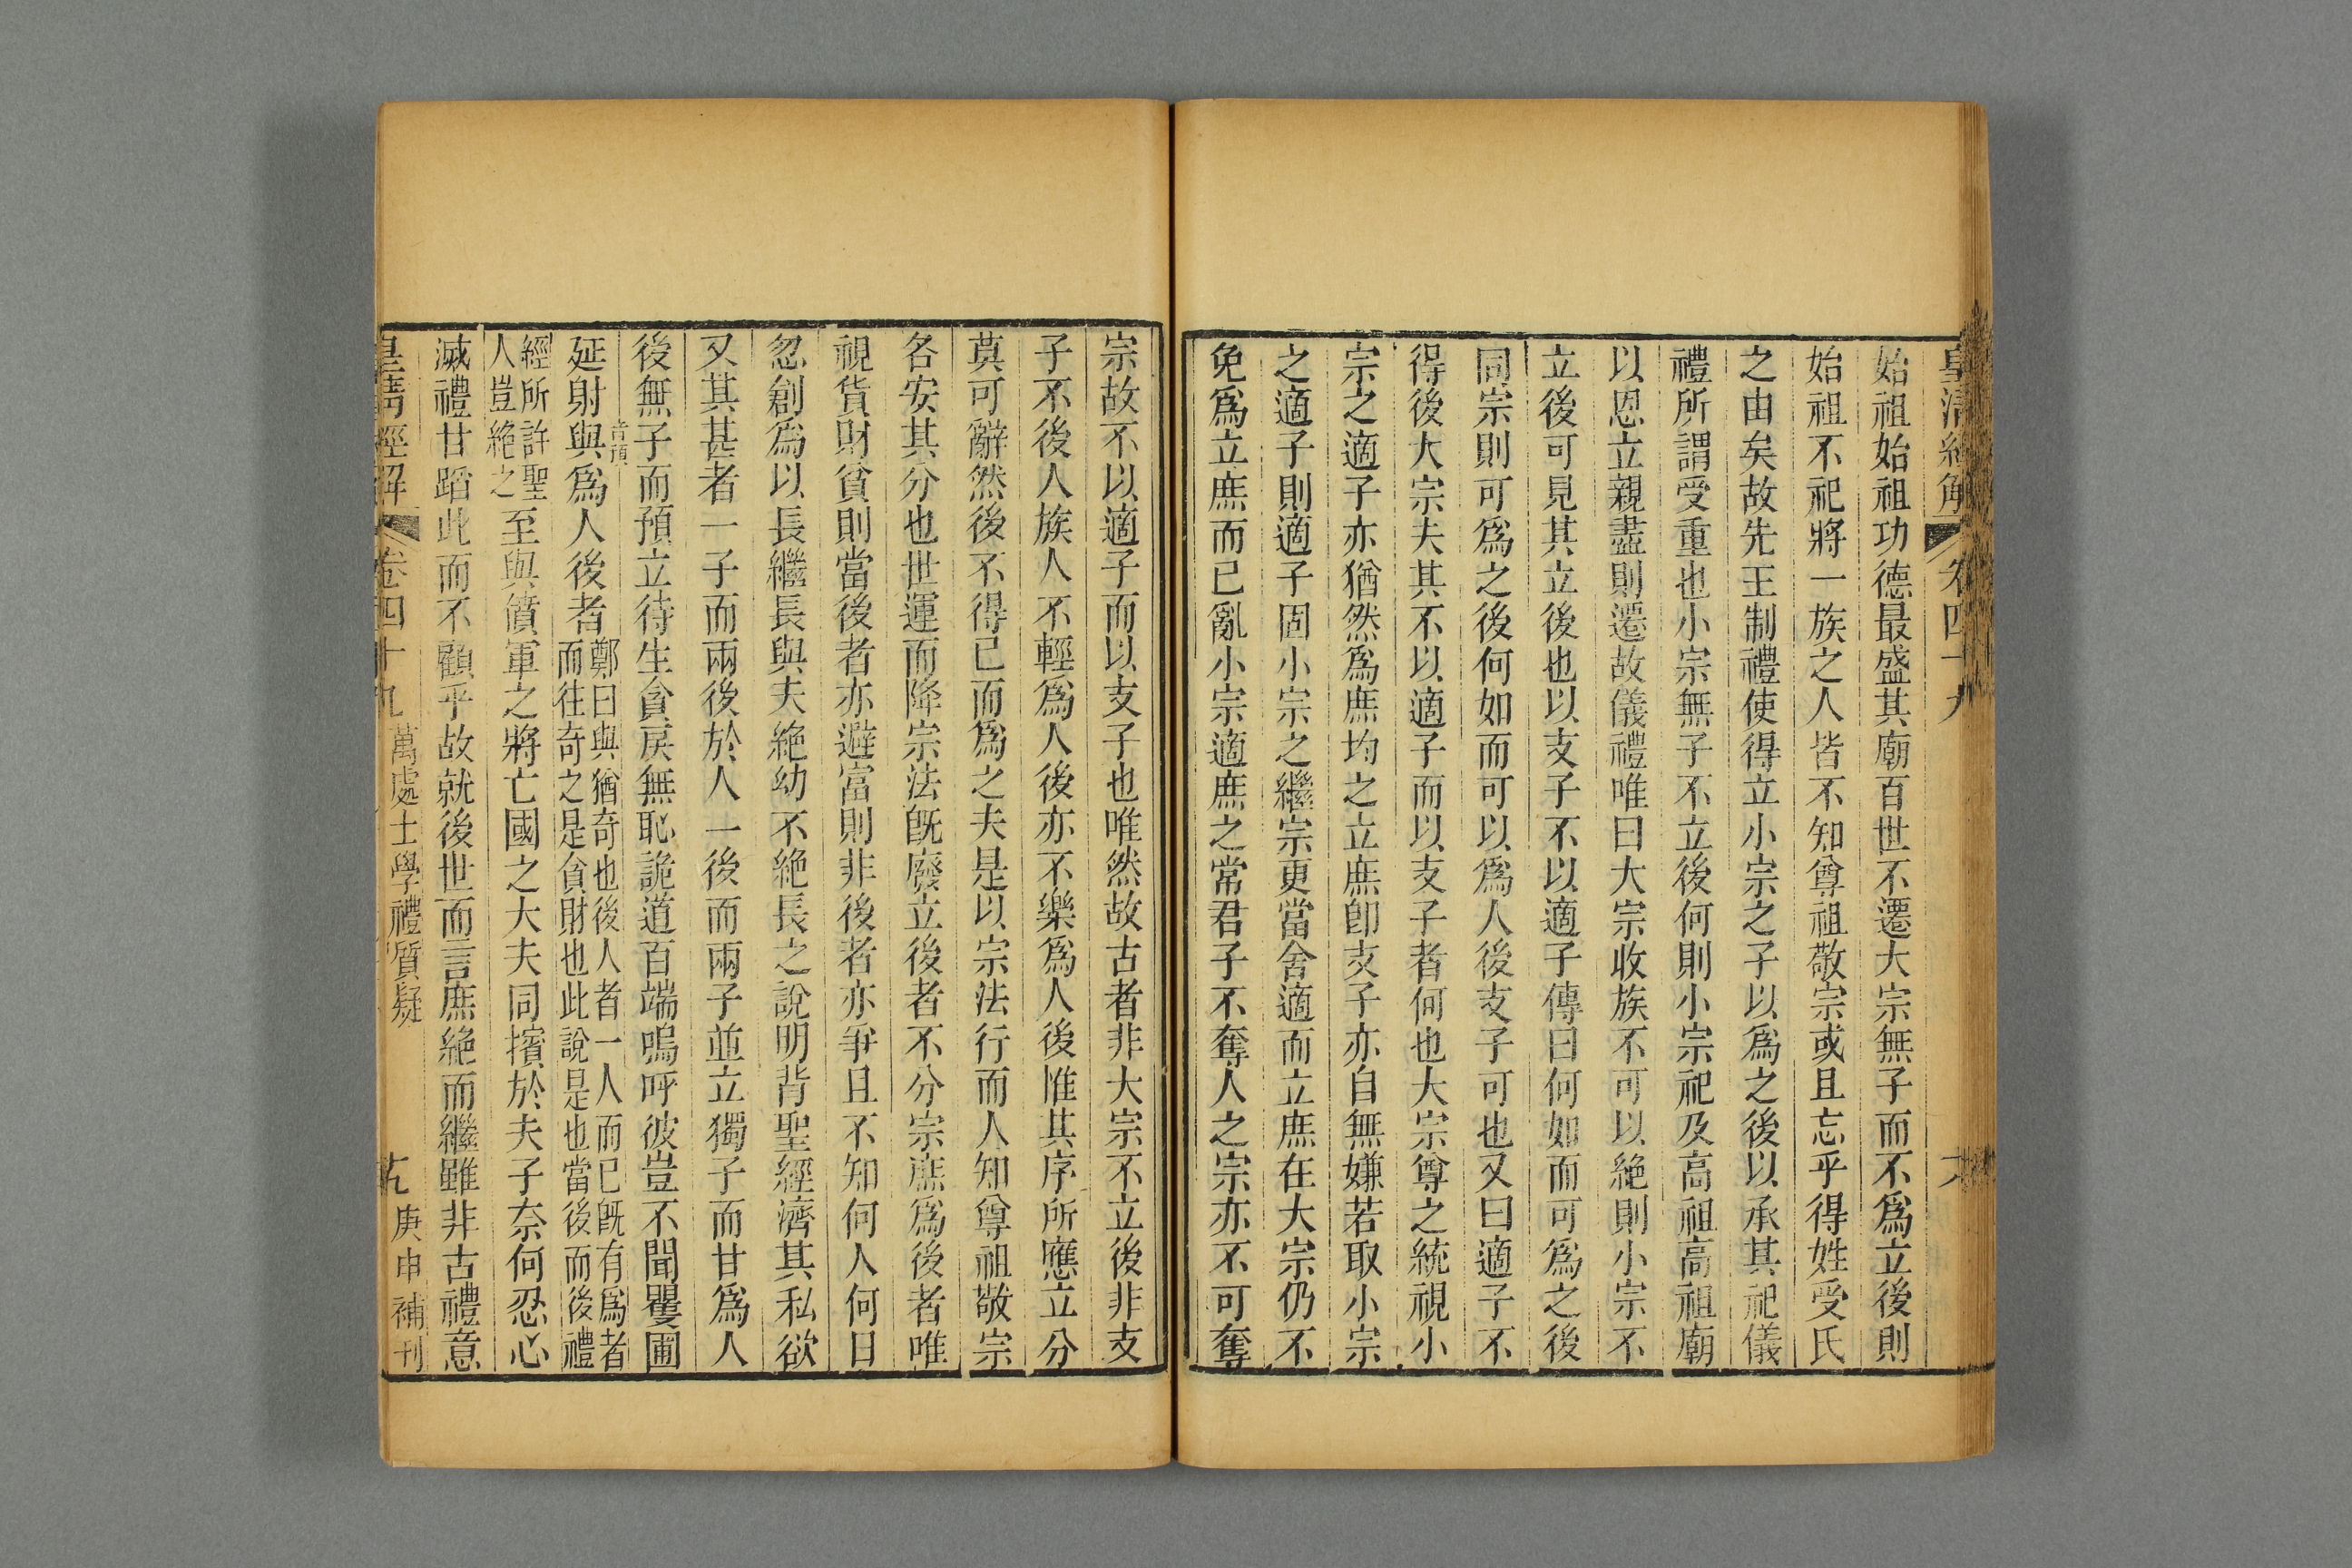 皇清經解 卷四十九
始祖始祖功德最盛其廟百世不遷大宗無子而不爲立後則
始祖不祀將一族之人皆不知尊祖敬宗或且忘乎得姓受氏
之由矣故先王制禮使得立小宗之子以爲之後以承其祀儀
禮所謂受重也小宗無子不立後何則小宗祀及高祖高祖廟
以恩立親盡則遷故儀禮唯曰大宗收族不可以絶則小宗不
立後可見其立後也以支子不以適子傳曰何如而可爲之後
同宗則可爲之後何如而可以爲人後支子可也又曰適子不
得後大宗夫其不以適子而以支子者何也大宗尊之統視小
宗之適子亦猶然爲庶均之立庶卽支子亦自無嫌若取小宗
之適子則適子固小宗之繼宗更當舍適而立庶在大宗仍不
免爲立庶而已亂小宗適庶之常君子不奪人之宗亦不可奪
宗故不以適子而以支子也唯然故古者非大宗不立後非支
子不後人族人不輕爲人後亦不樂爲人後惟其序所應立分
莫可辭然後不得已而爲之夫是以宗法行而人知尊祖敬宗
各安其分也世運而降宗法旣廢立後者不分宗庶爲後者唯
視貨財貧則當後者亦避富則非後者亦爭且不知何人何日
忽創爲以長繼長與夫絶幼不絶長之說明背聖經濟其私欲
又其甚者一子而兩後於人一後而兩子並立獨子而甘爲人
後無子而預立待生貪戾無恥詭道百端嗚呼彼豈不聞矍圃
延射與音預爲人後者鄭曰與猶奇也後人者一人而已旣有爲者
而往奇之是貪財也此說是也當後而後禮
經所許聖
人豈絶之至與僨軍之將亡國之大夫同擯於夫子奈何忍心
滅禮甘蹈此而不顧乎故就後世而言庶絶而繼雖非古禮意
皇清經解 卷四十九 萬處士學禮質疑 庚申補刊